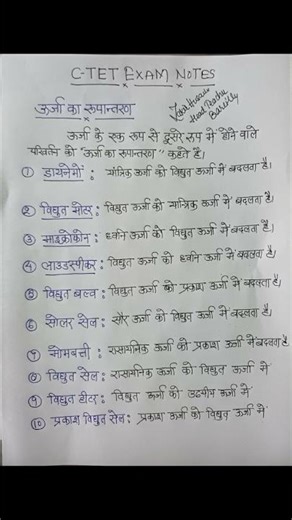 C-TET EXAM NOTES
ऊर्जा का रूपान्तरण
Head Teacher
Bareilly
ऊर्जा के एक रूप से दूसरे रूप में होने वाले
परिवर्तन को "ऊर्जा का रूपान्तरण" कहते हैं।
① डायनेमो : यांत्रिक ऊर्जा को विद्युत ऊर्जा में बदलता है।
② विद्युत मोटर : विद्युत ऊर्जा को यान्त्रिक ऊर्जा में बदलता है।
③ माइक्रोफोन : ध्वनि ऊर्जा को विद्युत ऊर्जा में बदलता है।
④ लाउडस्पीकर : विद्युत ऊर्जा को ध्वनि ऊर्जा में बदलता है।
⑤ विद्युत बल्ब : विद्युत ऊर्जा को प्रकाश ऊर्जा में बदलता है।
⑥ सोलर सेल : सौर ऊर्जा को विद्युत ऊर्जा में बदलता है।
⑦ मोमबत्ती : रासायनिक ऊर्जा को प्रकाश ऊर्जा में बदलता है।
⑧ विद्युत सेल : रासायनिक ऊर्जा को विद्युत ऊर्जा में
⑨ विद्युत हीटर : विद्युत ऊर्जा को ऊष्मीय ऊर्जा में
⑩ प्रकाश विद्युत सेल : प्रकाश ऊर्जा को विद्युत ऊर्जा में